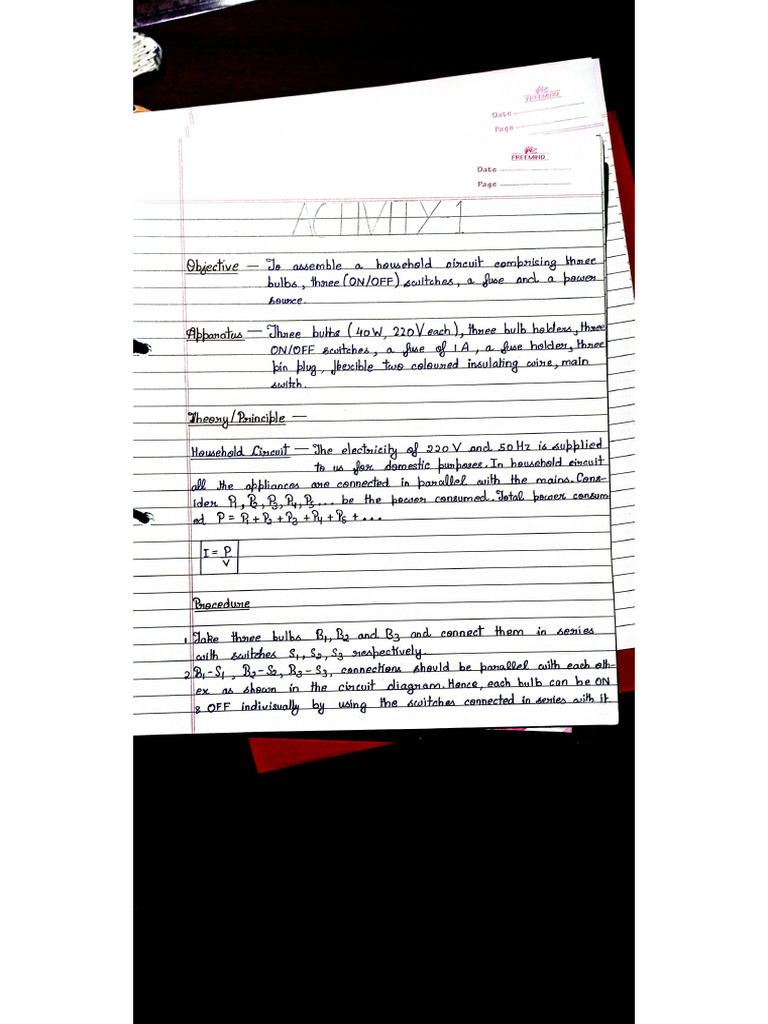 FREEMIND
Date
Page
FREEMIND
Date
Page
ACTIVITY-1
Objective — To assemble a household circuit comprising three
bulbs, three (ON/OFF) switches, a fuse and a power
source.
Apparatus — Three bulbs (40W, 220V each), three bulb holders, three
ON/OFF switches, a fuse of 1A, a fuse holder, three
pin plug, flexible two coloured insulating wire, main
switch.
Theory/Principle —
Household Circuit — The electricity of 220V and 50Hz is supplied
to us for domestic purposes. In household circuit
all the appliances are connected in parallel with the mains. Cons-
ider P1, P2, P3, P4, P5... be the power consumed. Total power consum
ed P = P1 + P2 + P3 + P4 + P5 + ...
I = P
V
Procedure
1. Take three bulbs B1, B2 and B3 and connect them in series
with switches S1, S2, S3 respectively.
2. B1-S1, B2-S2, B3-S3, connections should be parallel with each oth-
er as shown in the circuit diagram. Hence, each bulb can be ON
& OFF indivisually by using the switches connected in series with it